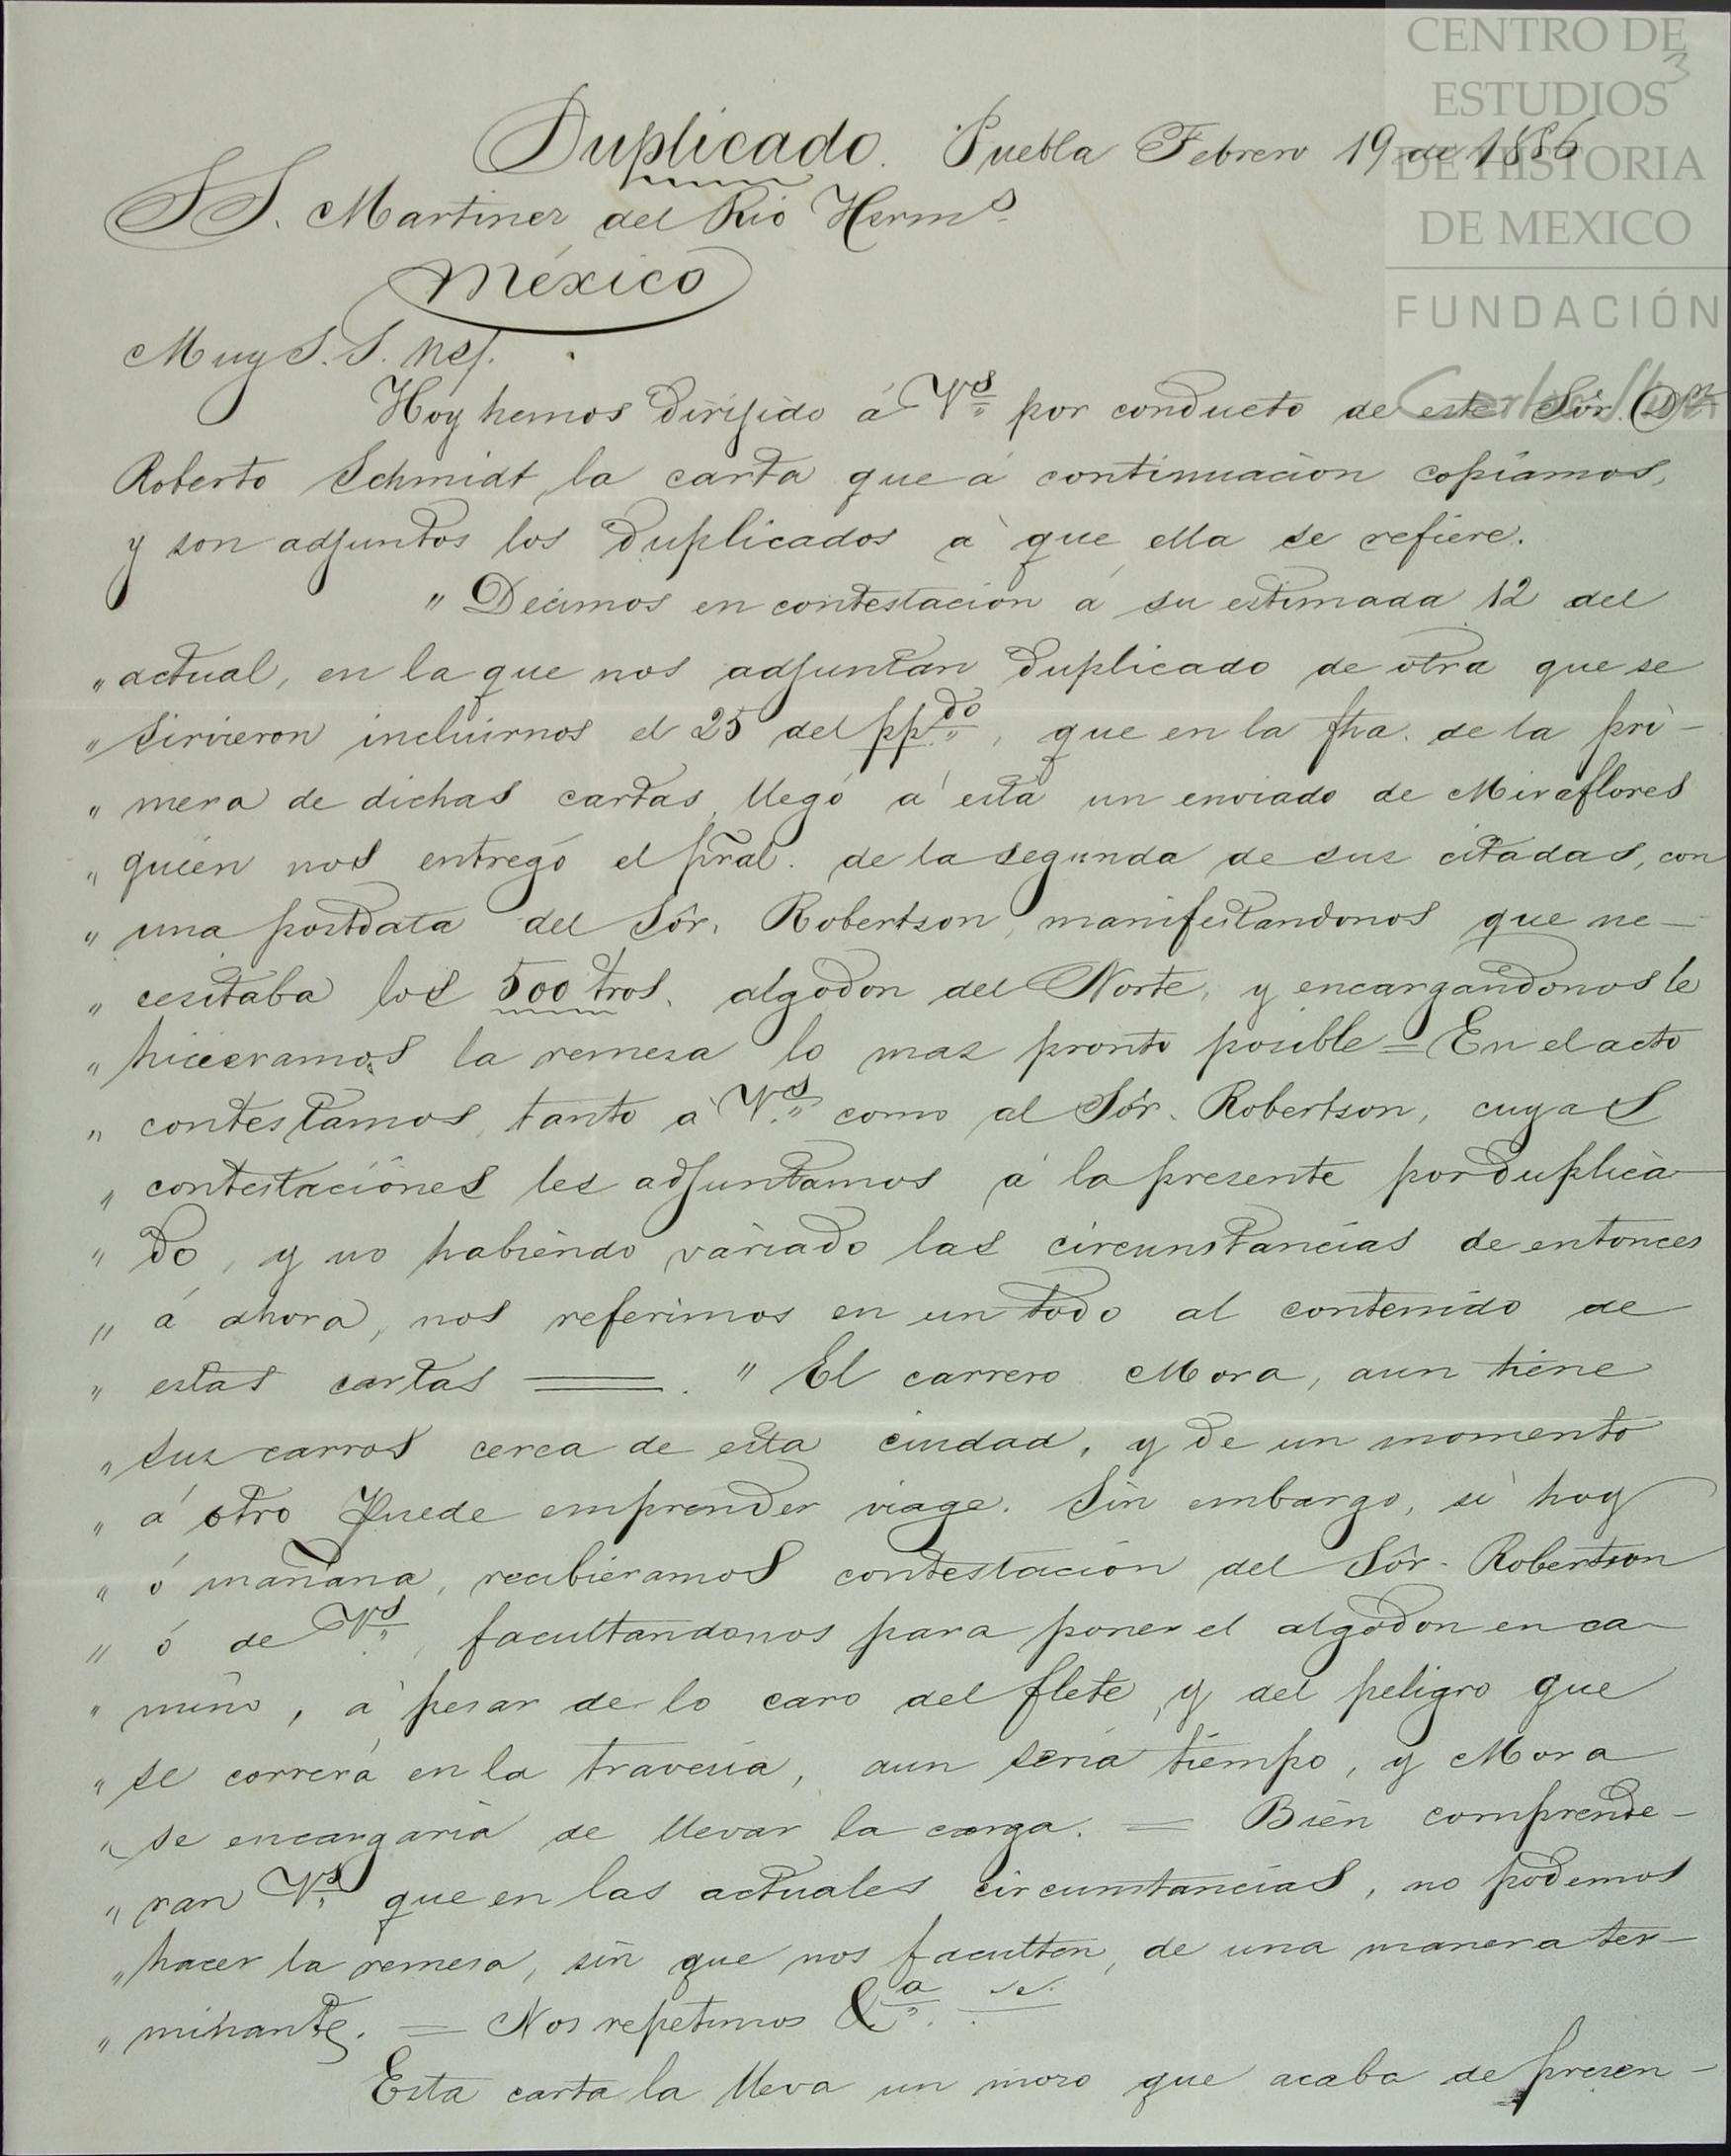 CENTRO DE
ESTUDIOS
DE HISTORIA
DE MEXICO
FUNDACIÓN
Carlos Slim
3
Duplicado. Puebla Febrero 19 de 1886
SS. Martinez del Rio Herms
México
Muy S. S. ns/.
Hoy hemos dirijido á Vs por conducto de este Sôr. Dn
Roberto Schmidt, la carta que á continuacion copiamos,
y son adjuntos los duplicados a que ella se refiere.
" Decimos en contestacion á su estimada 12 del
" actual, en la que nos adjuntan duplicado de otra que se
" sirvieron incluirnos el 25 del ppdo, que en la fha. de la pri-
" mera de dichas cartas, llegó á esta un enviado de Miraflores
" quien nos entregó el pral. de la segunda de sus citadas, con
" una postdata del Sôr. Robertson, manifestandonos que ne-
" cesitaba los 500 tros. algodon del Norte, y encargandonos le
" hicieramos la remesa lo mas pronto posible = En el acto
" contestamos, tanto á Vs como al Sôr. Robertson, cuyas
" contestaciones les adjuntamos á la presente por duplica-
" do, y no habiendo variado las circunstancias de entonces
" á ahora, nos referimos en un todo al contenido de
" estas cartas =. " El carrero Mora, aun tiene
" sus carros cerca de esta ciudad, y de un momento
" á otro puede emprender viage. Sin embargo, si hoy
" ó mañana, recibieramos contestacion del Sôr. Robertson
" ó de Vs, facultandonos para poner el algodon en ca-
" mino, á pesar de lo caro del flete, y del peligro que
" se correrá en la travesia, aun seria tiempo, y Mora
" se encargaria de llevar la carga. = Bien comprende-
" ran Vs que en las actuales circunstancias, no podemos
" hacer la remesa, sin que nos faculten, de una manera ter-
" minante. = Nos repetimos &a
Esta carta la lleva un mozo que acaba de presen-